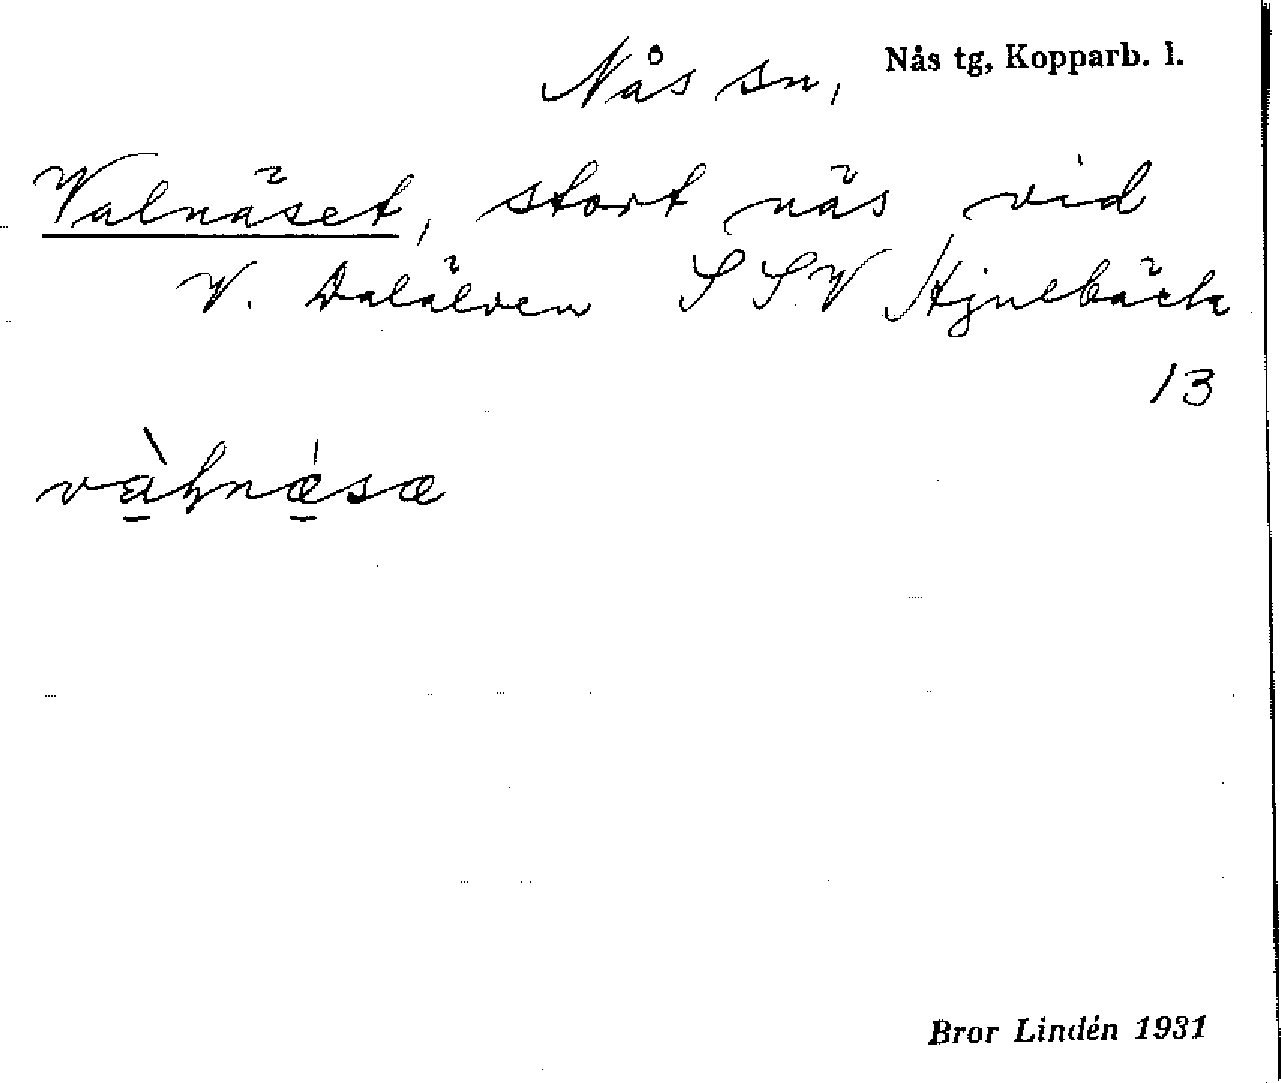 Nås sn, Nås tg, Kopparb. l.
Valnäset, stort näs vid
V. Dalälven SSV Hjulbäck
13
Bror Lindén 1931